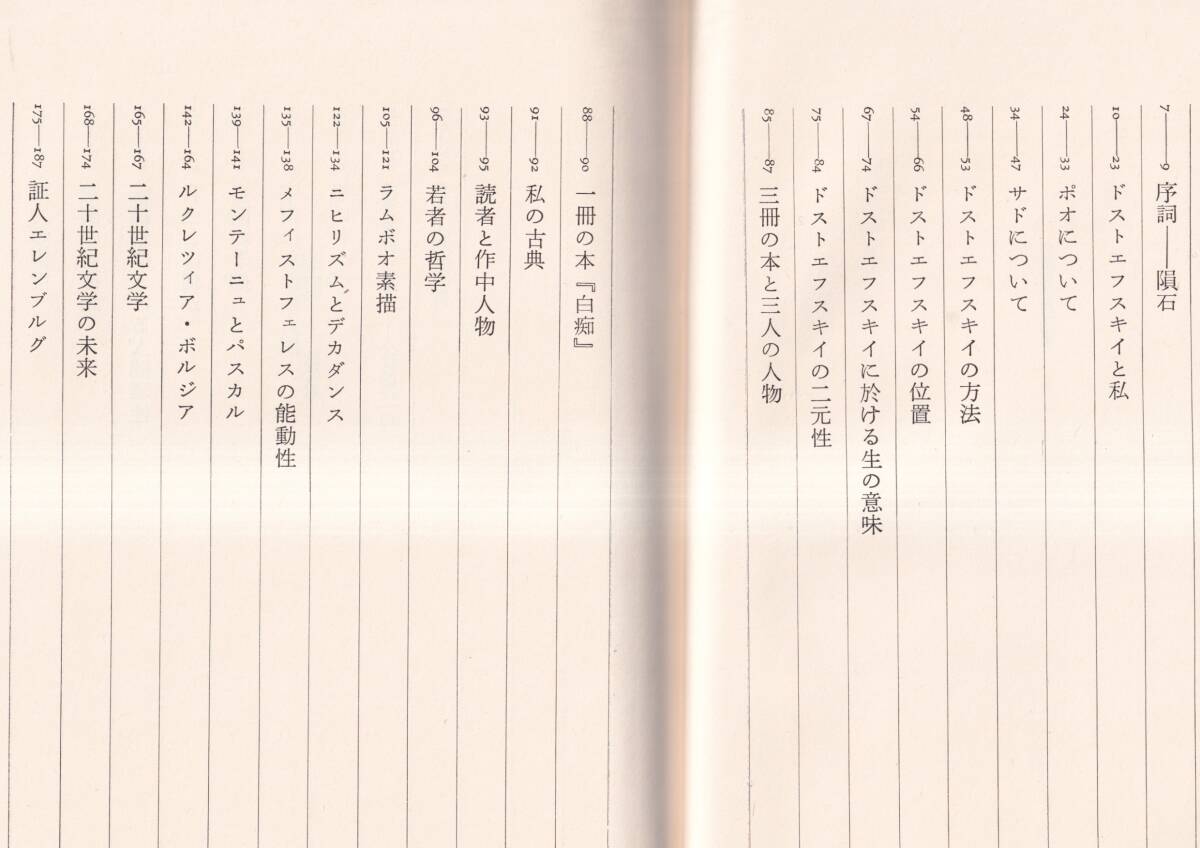 7——9 序詞——隕石
10——23 ドストエフスキイと私
24——33 ポオについて
34——47 サドについて
48——53 ドストエフスキイの方法
54——66 ドストエフスキイの位置
67——74 ドストエフスキイに於ける生の意味
75——84 ドストエフスキイの二元性
85——87 三冊の本と三人の人物
88——90 一冊の本『白痴』
91——92 私の古典
93——95 読者と作中人物
96——104 若者の哲学
105——121 ラムボオ素描
122——134 ニヒリズムとデカダンス
135——138 メフィストフェレスの能動性
139——141 モンテーニュとパスカル
142——164 ルクレツィア・ボルジア
165——167 二十世紀文学
168——174 二十世紀文学の未来
175——187 証人エレンブルグ